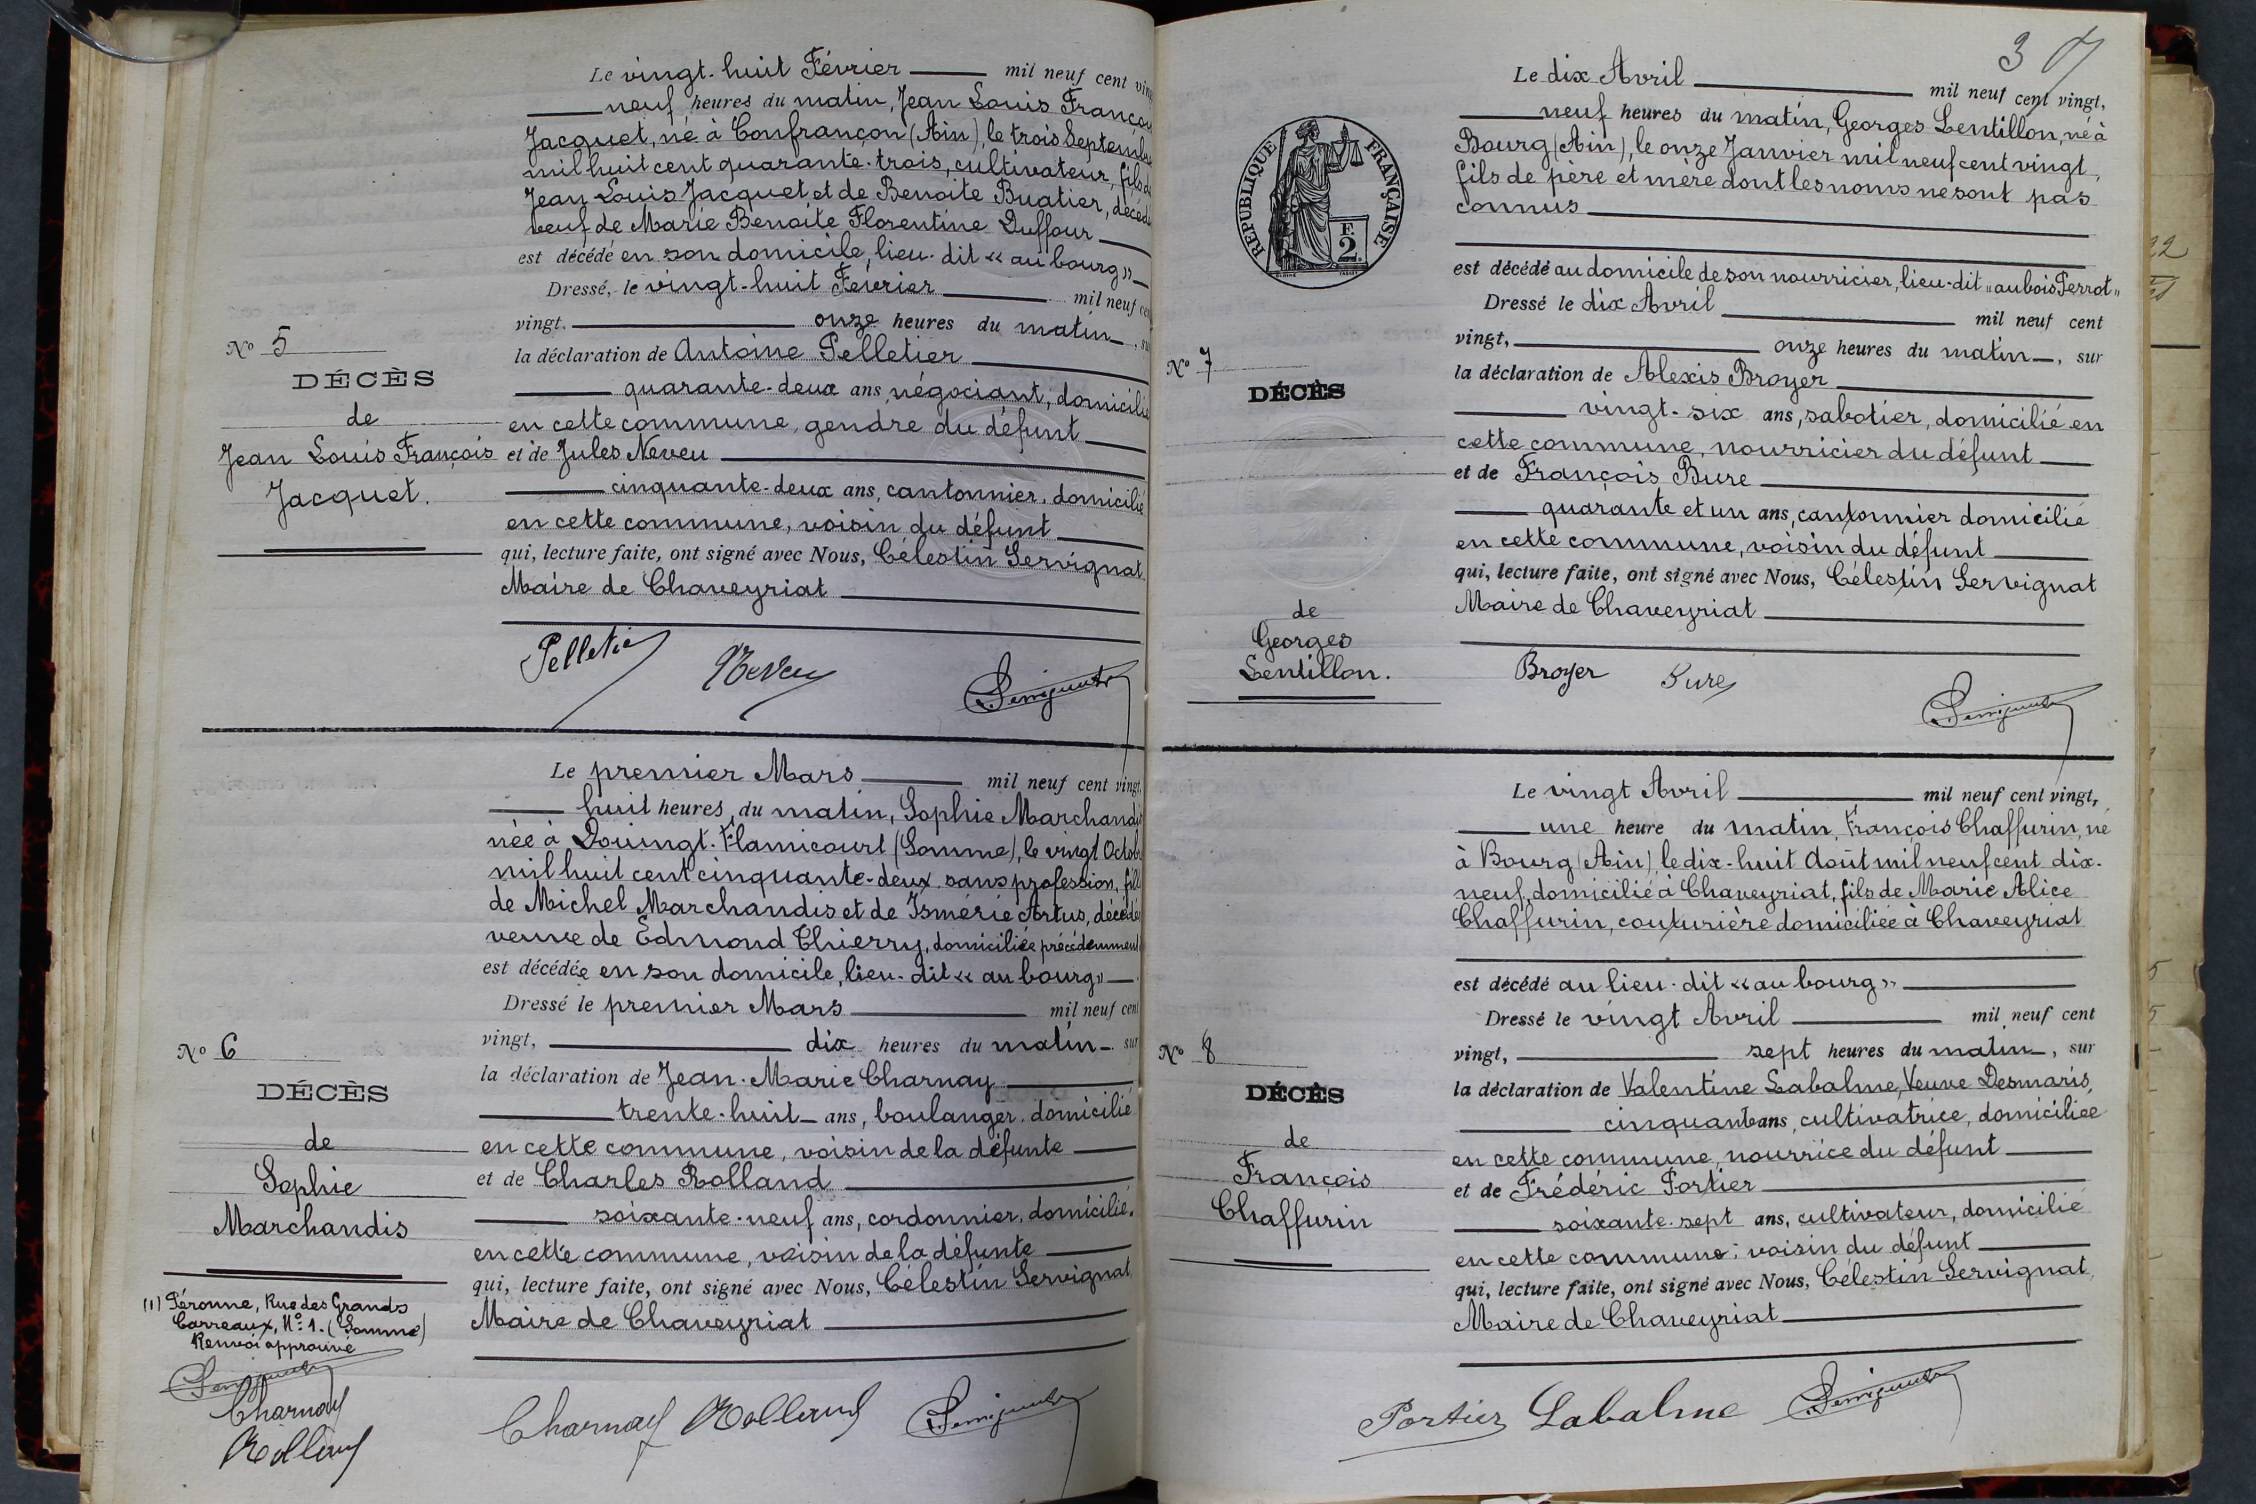 Le vingt-huit Février mil neuf cent vingt
neuf heures du matin, Jean Louis François
Jacquet, né à Confrançon (Ain), le trois Septembre
mil huit cent quarante-trois, cultivateur, fils de
Jean Louis Jacquet et de Benoite Buatier, décédés
veuf de Marie Benoite Florentine Duffour
est décédé en son domicile, lieu-dit « au bourg »
Dressé, le vingt-huit Février mil neuf cent
vingt, onze heures du matin, sur
la déclaration de Antoine Pelletier
quarante-deux ans, négociant, domicilié
en cette commune, gendre du défunt
et de Jules Neveu
cinquante-deux ans, cantonnier, domicilié
en cette commune, voisin du défunt
qui, lecture faite, ont signé avec Nous, Célestin Servignat
Maire de Chaveyriat
Pelletier Neveu Servignat
No 5
DÉCÈS
de
Jean Louis François
Jacquet.
Le premier Mars mil neuf cent vingt,
huit heures du matin, Sophie Marchandis
née à Doingt-Flamicourt (Somme), le vingt Octobre
mil huit cent cinquante-deux, sans profession, fille
de Michel Marchandis et de Ismérie Artus, décédés
veuve de Edmond Thierry, domiciliée précédemment
est décédée en son domicile, lieu-dit « au bourg »
Dressé le premier Mars mil neuf cent
vingt, dix heures du matin, sur
la déclaration de Jean-Marie Charnay
trente-huit ans, boulanger, domicilié
en cette commune, voisin de la défunte
et de Charles Rolland
soixante-neuf ans, cordonnier, domicilié
en cette commune, voisin de la défunte
qui, lecture faite, ont signé avec Nous, Célestin Servignat
Maire de Chaveyriat
Charnay Rolland Servignat
No 6
DÉCÈS
de
Sophie
Marchandis
(1) Péronne, Rue des Grands
Carreaux, No 1. (Somme)
Renvoi approuvé
Servignat
Charnay
Rolland
3
RÉPUBLIQUE FRANÇAISE
F.
2
Le dix Avril mil neuf cent vingt,
neuf heures du matin, Georges Lentillon, né à
Bourg (Ain), le onze Janvier mil neuf cent vingt,
fils de père et mère dont les noms ne sont pas
connus
est décédé au domicile de son nourricier, lieu-dit "au bois Perrot"
Dressé le dix Avril mil neuf cent
vingt, onze heures du matin, sur
la déclaration de Alexis Broyer
vingt-six ans, sabotier, domicilié en
cette commune, nourricier du défunt
et de François Bure
quarante et un ans, cantonnier domicilié
en cette commune, voisin du défunt
qui, lecture faite, ont signé avec Nous, Célestin Servignat
Maire de Chaveyriat
Broyer Bure Servignat
No 7
DÉCÈS
de
Georges
Lentillon.
Le vingt Avril mil neuf cent vingt,
une heure du matin, François Chaffurin, né
à Bourg (Ain), le dix-huit Août mil neuf cent dix-
neuf, domicilié à Chaveyriat, fils de Marie Alice
Chaffurin, couturière domiciliée à Chaveyriat
est décédé au lieu-dit « au bourg »
Dressé le vingt Avril mil neuf cent
vingt, sept heures du matin, sur
la déclaration de Valentine Labalme, Veuve Desmaris,
cinquante ans, cultivatrice, domiciliée
en cette commune, nourrice du défunt
et de Frédéric Portier
soixante-sept ans, cultivateur, domicilié
en cette commune; voisin du défunt
qui, lecture faite, ont signé avec Nous, Célestin Servignat,
Maire de Chaveyriat
Portier Labalme Servignat
No 8
DÉCÈS
de
François
Chaffurin